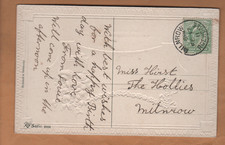 With best wishes
for a happy Birth
day with love
From
Will come up in the
afternoon
Miss Hirst
The Hollies
Milnrow